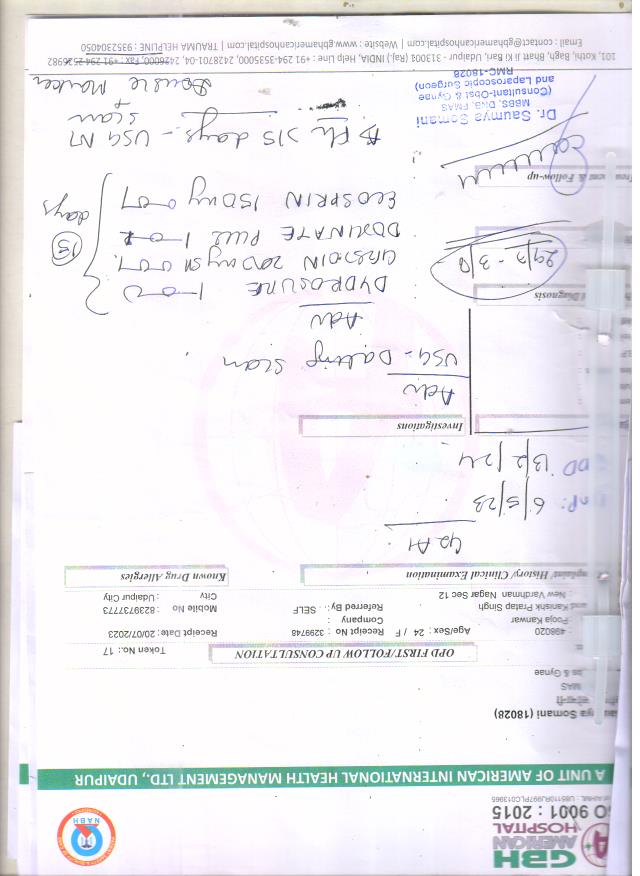 GBH
AMERICAN
HOSPITAL
O 9001 : 2015
U85110RJ997PLC013965
NABH
A UNIT OF AMERICAN INTERNATIONAL HEALTH MANAGEMENT LTD., UDAIPUR
ya Somani (18028)
MAS
bs & Gynae
Token No.: 17
OPD FIRST/FOLLOW UP CONSULTATION
498020
Age/Sex : 24 / F
Receipt No : 3299748
Receipt Date: 20/07/2023
Pooja Kanwar
Company :
and Kanishk Pratap Singh
Referred By: . SELF
Mobile No : 8239737773
: New Vardhman Nagar Sec 12
City : Udaipur City
mplaint/ History/ Clinical Examination
Known Drug Allergies
G2 A1
MP: 6/5/23
DD 13/2/24
Investigations
Adv
USG - Dating Scan
Adv
DYDROSURE 1-0-1
200 mg SR 0-0-1
DOXINATE PLUS 1-0-1
ECOSPRIN 150 mg 0-0-1
15 days
Diagnosis
29/7 - 3/8
Treatment & Follow-up
F/u 15 days - USG NT
Scan
+
Double Marker
Dr. Saumya Somani
MBBS, DNB, FMAS
(Consultant-Obst & Gynae
and Laparoscopic Surgeon)
RMC-18028
101, Kothi, Bagh, Bhatt Ji Ki Bari, Udaipur - 313001 (Raj.) INDIA, Help Line : +91 294-3535000, 2428701-04, 2426000, Fax : +91-294-2526982
Email : contact@gbhamericanhospital.com | Website : www.gbhamericanhospital.com | TRAUMA HELPLINE : 9352304050